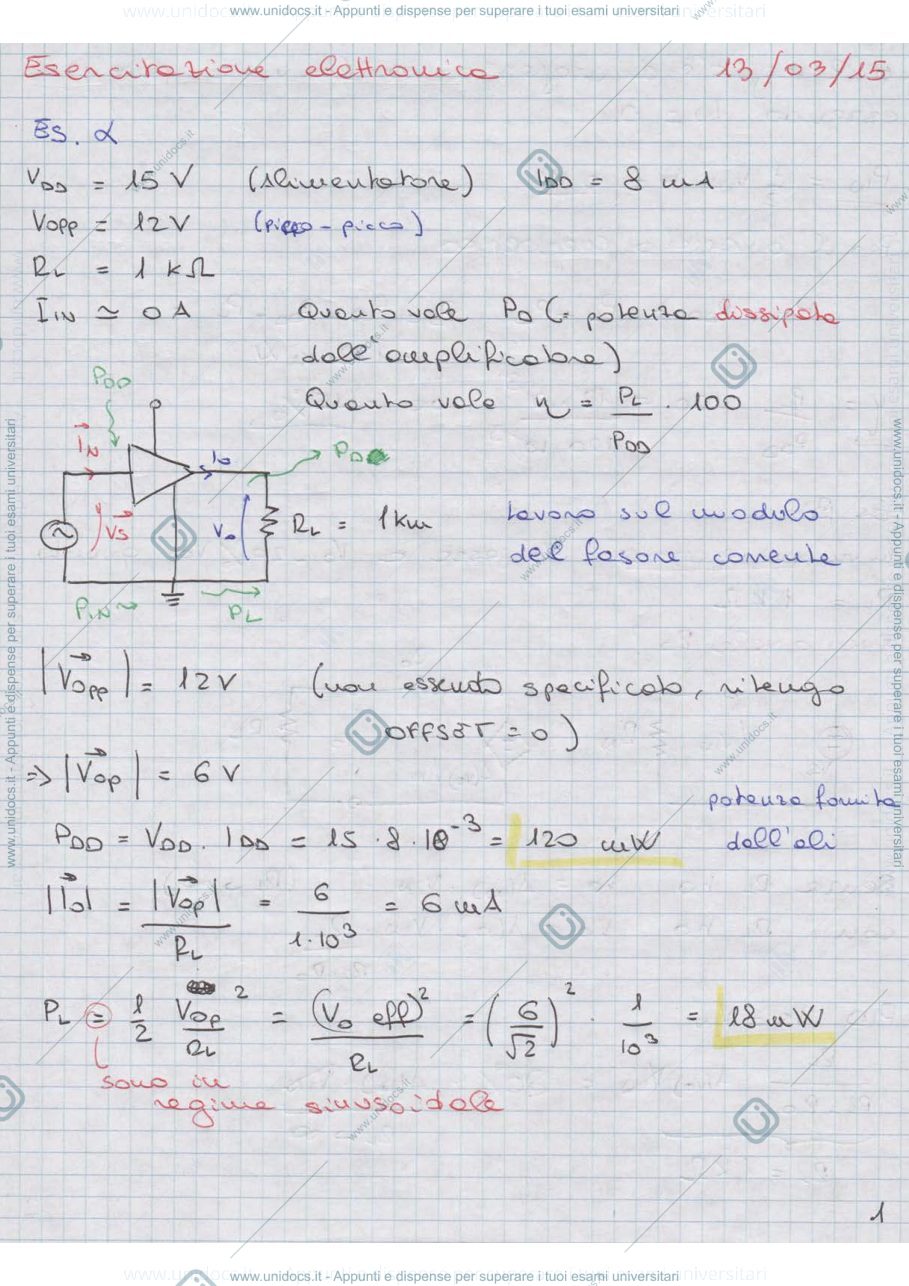 www.unidocs.it - Appunti e dispense per superare i tuoi esami universitari
Esercitazione elettronica 13/03/15
Es. α
VDD = 15 V (Alimentatore) IDD = 8 mA
Vopp = 12V (picco-picco)
RL = 1 kΩ
IIN ≃ 0 A Quanto vale PD (= potenza dissipata
dall'amplificatore)
Quanto vale η = PL/PDD · 100
PDD
IN
Io
PD
Vs
Vo
RL = 1 km
Lavoro sul modulo
del fasore corrente
PIN
PL
|Vopp| = 12V (non essendo specificato, ritengo
OFFSET = 0)
=> |Vop| = 6 V
PDD = VDD · IDD = 15 · 8 · 10^-3 = 120 mW potenza fornita
dall'ali
|Io| = |Vop|/RL = 6/(1·10^3) = 6 mA
PL = 1/2 Vop^2/RL = (Vo eff)^2/RL = (6/√2)^2 · 1/10^3 = 18 mW
sono in
regime sinusoidale
1
www.unidocs.it - Appunti e dispense per superare i tuoi esami universitari
www.unidocs.it - Appunti e dispense per superare i tuoi esami universitari
www.unidocs.it - Appunti e dispense per superare i tuoi esami universitari